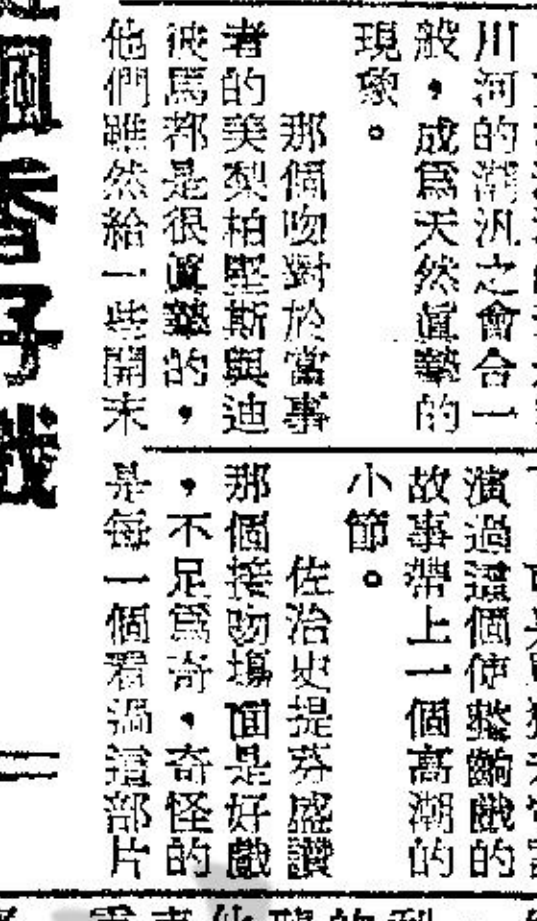 川河的潮汎之會合一
般，成爲天然眞摯的
現象。
那個吻對於當事
者的美梨柏堅斯與迪
彼馬都是很眞摯的，
他們雖然給一些開末
演過這個使整齣戲的
故事帶上一個高潮的
小節。
佐治史提芬盛讚
那個接吻塲面是好戲
，不足爲奇，奇怪的
是每一個看過這部片
子戲